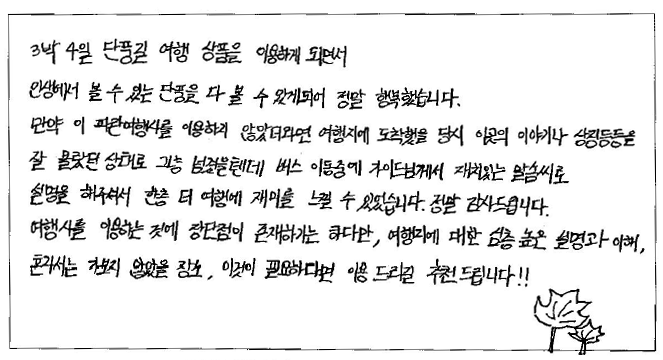 3박 4일 단풍길 여행 상품을 이용하게 되면서
인생에서 볼 수 있는 단풍을 다 볼 수 있게되어 정말 행복했습니다.
만약 이 파란여행사를 이용하지 않았더라면 여행지에 도착했을 당시 이곳의 이야기나 상징등등을
잘 몰랐던 상태로 그냥 넘겼을텐데 버스 이동중에 가이드님께서 재치있는 말솜씨로
설명을 해주셔서 한층 더 여행에 재미를 느낄 수 있었습니다. 정말 감사드립니다.
여행사를 이용하는 것에 장단점이 존재하기는 하다만, 여행지에 대한 심층 높은 설명과 이해,
혼자서는 가보지 않았을 장소, 이것이 필요하다면 이용 드리길 추천드립니다!!